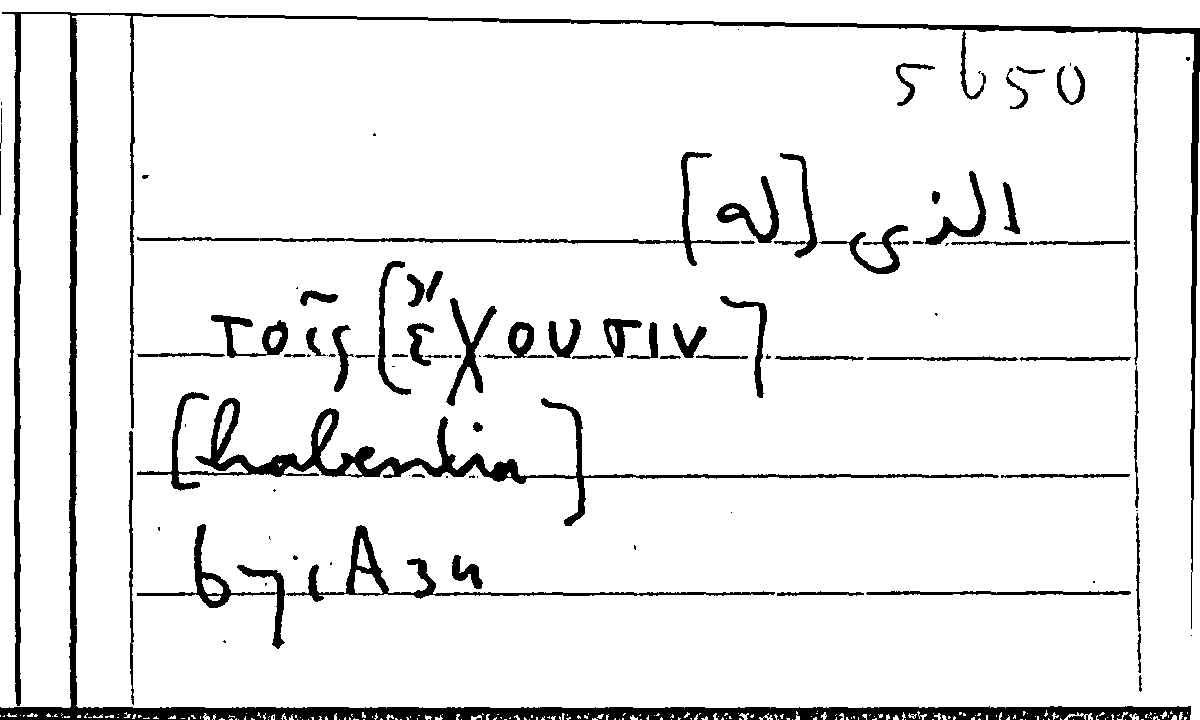 5650
التى [له]
τοῖς [ἔχουσιν]
[habentia]
671 A 34